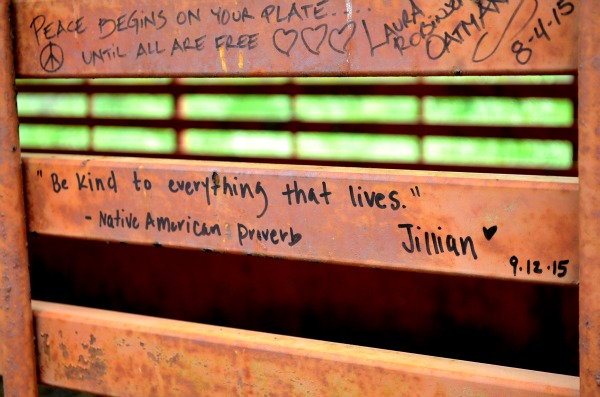 PEACE BEGINS ON YOUR PLATE.....
UNTIL ALL ARE FREE
LAURA
OATMAN
8-4-15
"Be kind to everything that lives."
- Native American Proverb
Jillian
9.12.15